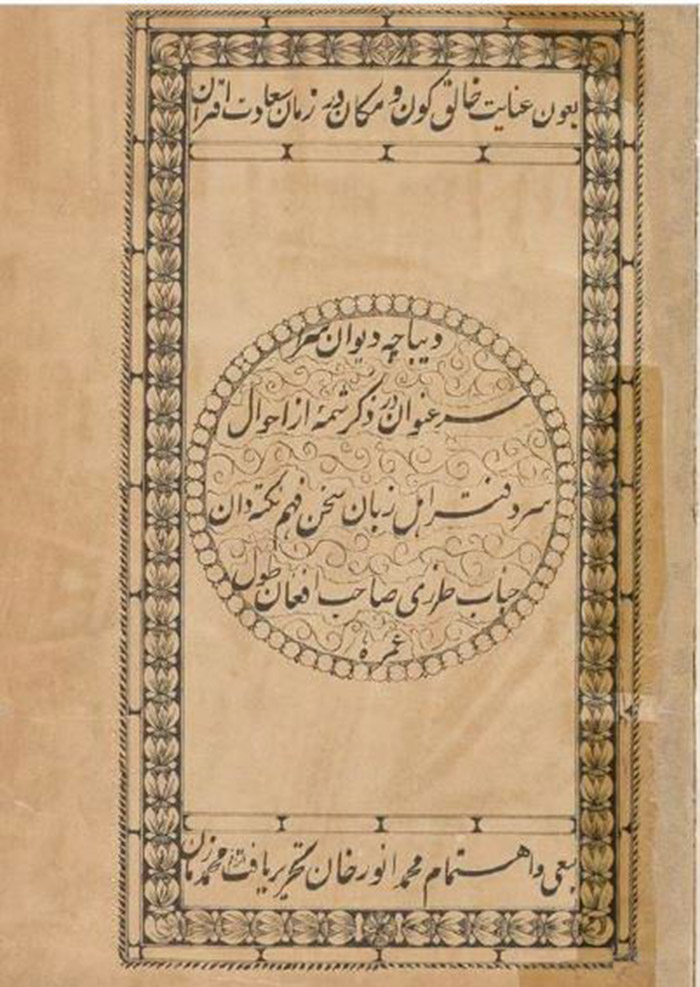 بعون عنایت خالق کون و مکان در زمان سعادت اقتران
دیباچه دیوان سر
سر عنوان در ذکر شمهٔ از احوال
سر دفتر اهل زبان سخن فهم نکته دان
جناب طرزی صاحب افغان طول
عمره
بسعی و اهتمام محمد انور خان تحریر یافت محمد زمان